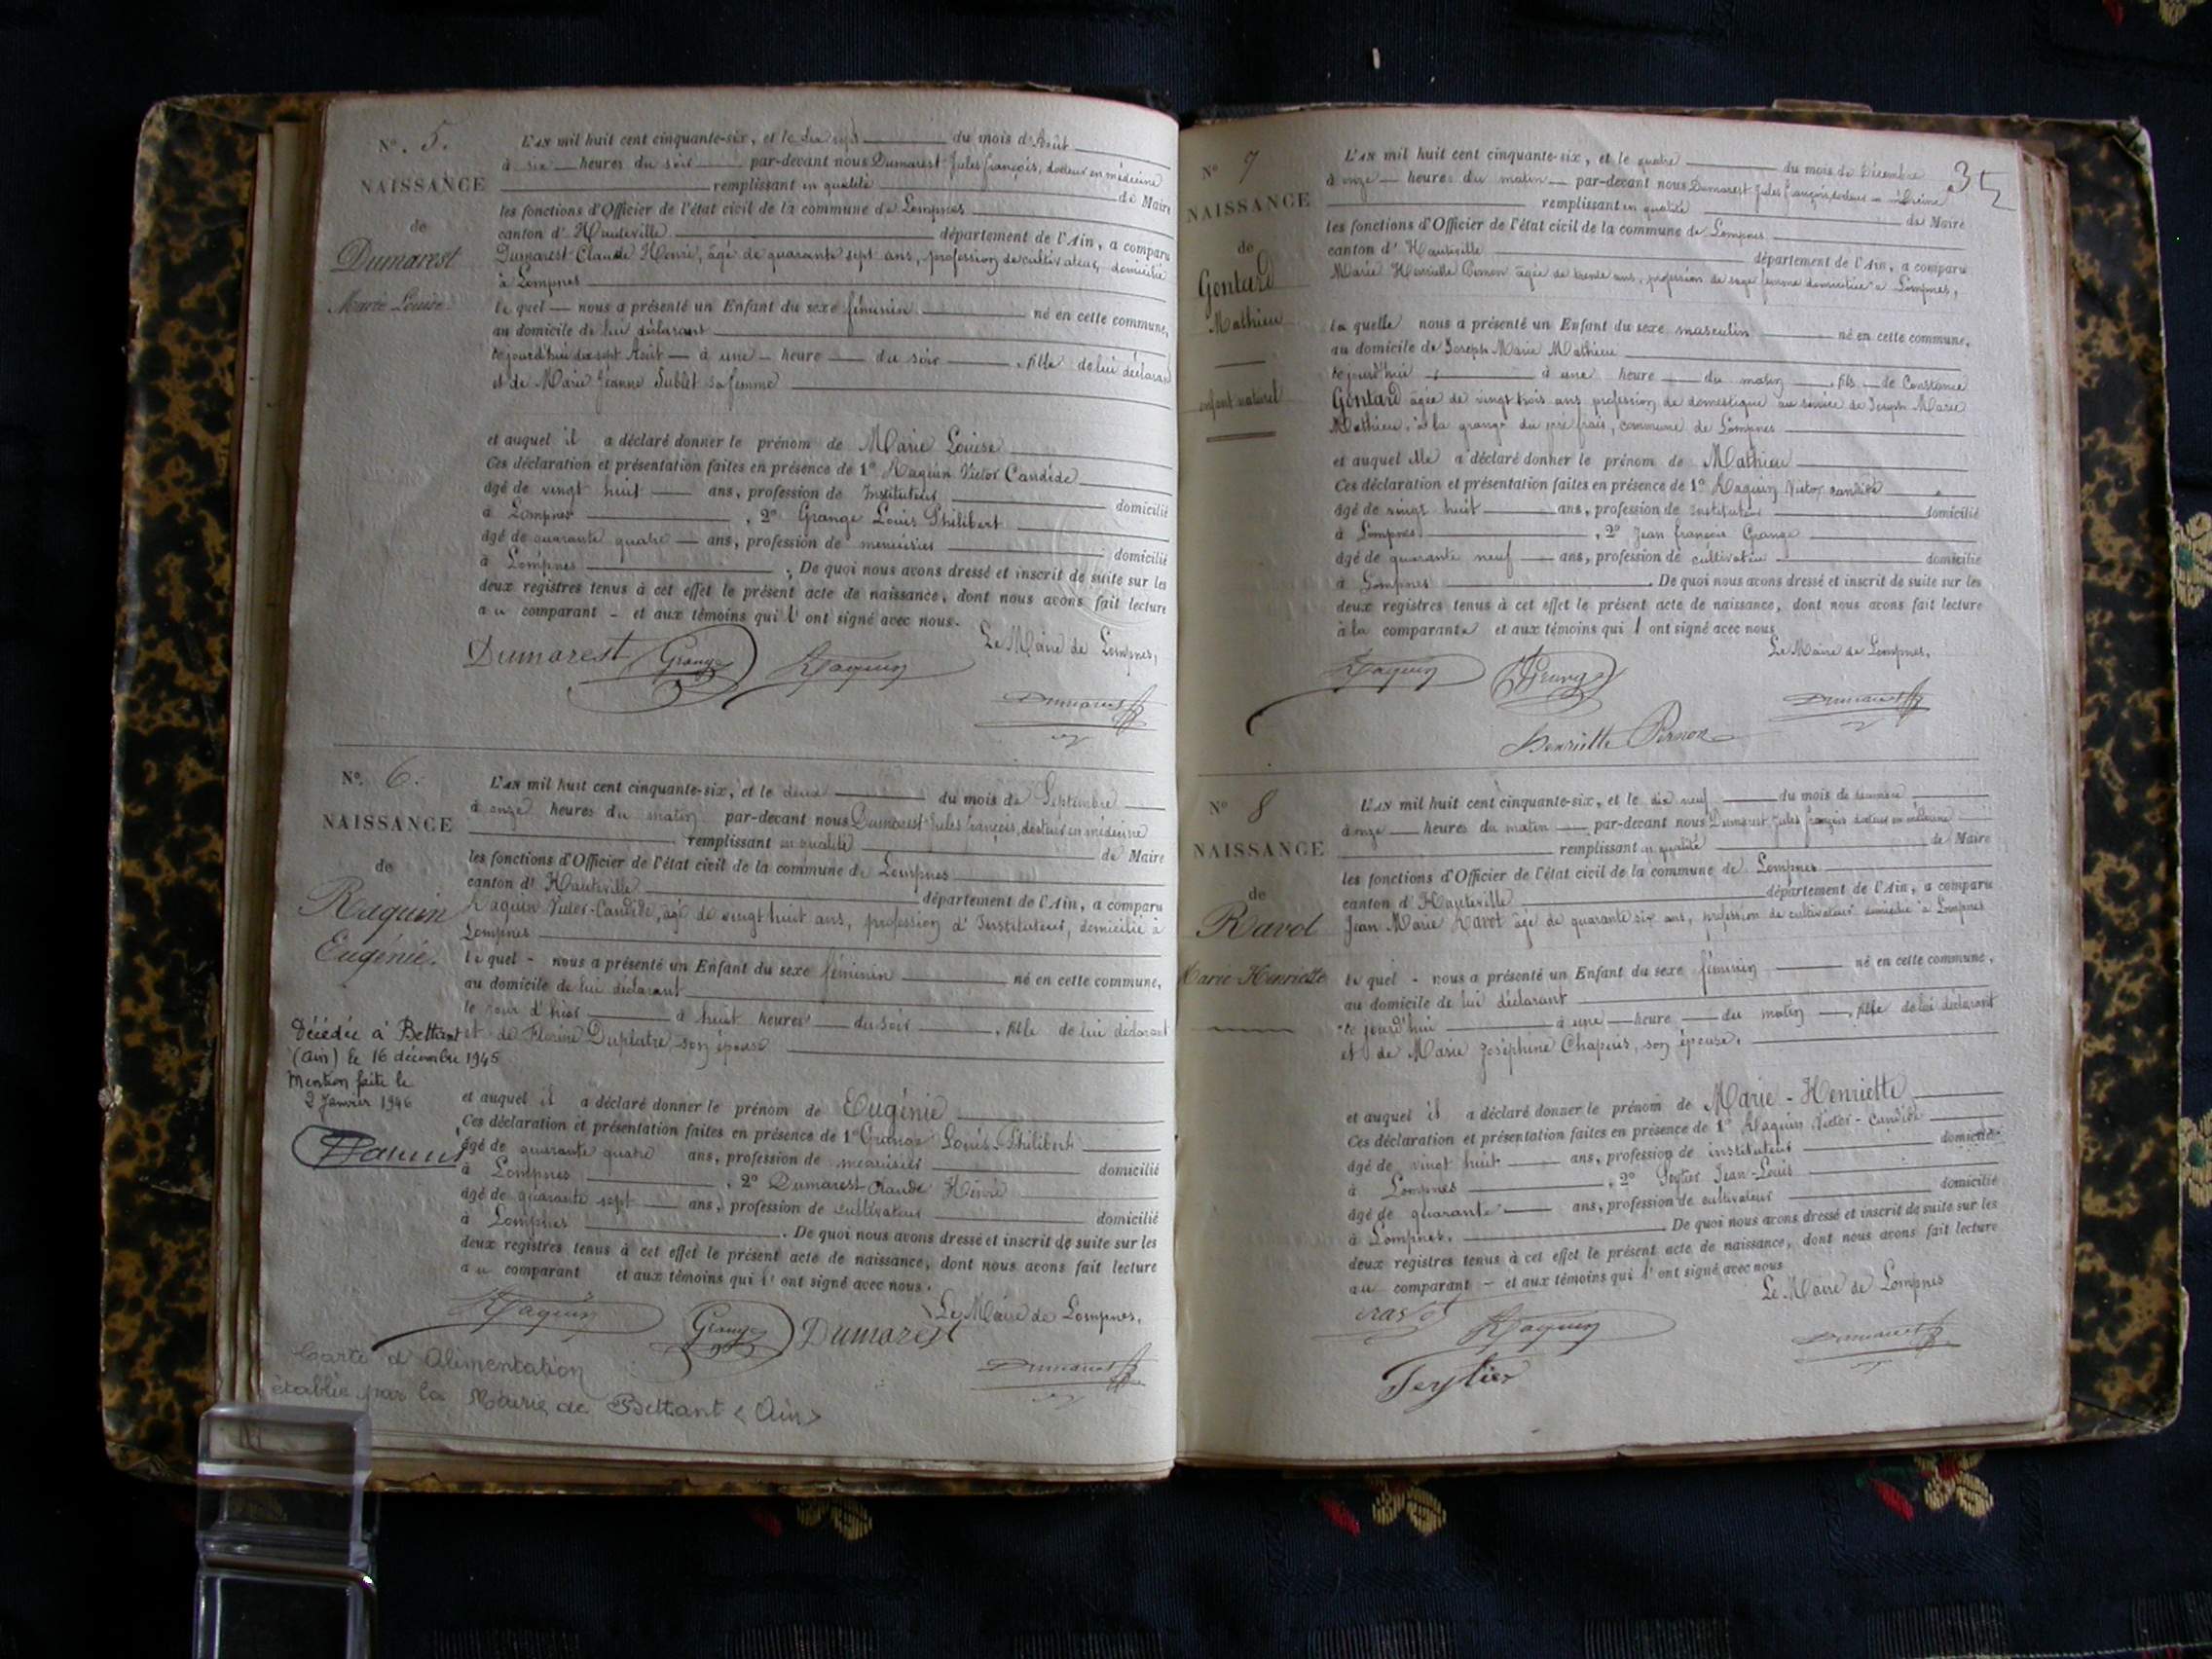 N°. 5.
NAISSANCE
de
Dumarest
Marie Louise
L'AN mil huit cent cinquante-six, et le dix sept du mois d'Août
à six heures du soir par-devant nous Dumarest Jules françois, docteur en médecine
remplissant en qualité de Maire
les fonctions d'Officier de l'état civil de la commune de Lompnes
canton d'Hauteville département de l'Ain, a comparu
Dumarest Claude Henri, âgé de quarante sept ans, profession de cultivateur, domicilié
à Lompnes
le quel nous a présenté un Enfant du sexe féminin né en cette commune,
au domicile de lui déclarant
cejourd'hui dix sept Août à une heure du soir, fille de lui déclarant
et de Marie Jeanne Sublet sa femme
et auquel il a déclaré donner le prénom de Marie Louise
Ces déclaration et présentation faites en présence de 1° Raquin Victor Candide
âgé de vingt huit ans, profession de Instituteur domicilié
à Lompnes, 2° Grange Louis Philibert
âgé de quarante quatre ans, profession de menuisier domicilié
à Lompnes. De quoi nous avons dressé et inscrit de suite sur les
deux registres tenus à cet effet le présent acte de naissance, dont nous avons fait lecture
au comparant - et aux témoins qui l'ont signé avec nous.
Le Maire de Lompnes,
Dumarest Grange Raquin
Dumarest
N°. 6.
NAISSANCE
de
Raquin
Eugénie.
Décédée à Bettant
(Ain) le 16 décembre 1945
Mention faite le
2 Janvier 1946
L'AN mil huit cent cinquante-six, et le deux du mois de Septembre
à onze heures du matin par-devant nous Dumarest Jules françois, docteur en médecine
remplissant en qualité de Maire
les fonctions d'Officier de l'état civil de la commune de Lompnes
canton d'Hauteville département de l'Ain, a comparu
Raquin Victor-Candide, âgé de vingt huit ans, profession d'Instituteur, domicilié à
Lompnes
le quel - nous a présenté un Enfant du sexe féminin né en cette commune,
au domicile de lui déclarant
le jour d'hier à huit heures du soir, fille de lui déclarant
et de Florine Duplatre son épouse
et auquel il a déclaré donner le prénom de Eugénie
Ces déclaration et présentation faites en présence de 1° Grange Louis-Philibert
âgé de quarante quatre ans, profession de menuisier domicilié
à Lompnes, 2° Dumarest Claude Henri
âgé de quarante sept ans, profession de cultivateur domicilié
à Lompnes. De quoi nous avons dressé et inscrit de suite sur les
deux registres tenus à cet effet le présent acte de naissance, dont nous avons fait lecture
au comparant et aux témoins qui l'ont signé avec nous.
Le Maire de Lompnes,
Raquin Grange Dumarest
Dumarest
Carte d'Alimentation
établie par la Mairie de Bettant (Ain)
35
N° 7
NAISSANCE
de
Gontard
Mathieu
enfant naturel
L'AN mil huit cent cinquante-six, et le quatre du mois de Décembre
à onze heures du matin par-devant nous Dumarest Jules françois, docteur en
remplissant en qualité de Maire
les fonctions d'Officier de l'état civil de la commune de Lompnes
canton d'Hauteville département de l'Ain, a comparu
Marie Henriette Pernon âgée de trente ans, profession de sage femme domiciliée à Lompnes,
la quelle nous a présenté un Enfant du sexe masculin né en cette commune,
au domicile de Joseph Marie Mathieu
cejourd'hui à une heure du matin, fils de Constance
Gontard âgée de vingt trois ans profession de domestique au service de Joseph Marie
Mathieu, à la grange du pré frais, commune de Lompnes
et auquel elle a déclaré donner le prénom de Mathieu
Ces déclaration et présentation faites en présence de 1° Raquin Victor candide
âgé de vingt huit ans, profession de instituteur domicilié
à Lompnes, 2° Jean françois Grange
âgé de quarante neuf ans, profession de cultivateur domicilié
à Lompnes. De quoi nous avons dressé et inscrit de suite sur les
deux registres tenus à cet effet le présent acte de naissance, dont nous avons fait lecture
à la comparante et aux témoins qui l'ont signé avec nous
Le Maire de Lompnes,
Raquin Grange
Dumarest
Henriette Pernon
N° 8
NAISSANCE
de
Ravot
Marie-Henriette
L'AN mil huit cent cinquante-six, et le dix neuf du mois de décembre
à onze heures du matin par-devant nous Dumarest Jules françois docteur en médecine
remplissant en qualité de Maire
les fonctions d'Officier de l'état civil de la commune de Lompnes
canton d'Hauteville département de l'Ain, a comparu
Jean Marie Ravot âgé de quarante six ans, profession de cultivateur domicilié à Lompnes
le quel - nous a présenté un Enfant du sexe féminin né en cette commune,
au domicile de lui déclarant
ce jourd'hui à une heure du matin, fille de lui déclarant
et de Marie Joséphine Chapuis, son épouse.
et auquel il a déclaré donner le prénom de Marie-Henriette
Ces déclaration et présentation faites en présence de 1° Raquin Victor-Candide
âgé de vingt huit ans, profession de instituteur domicilié
à Lompnes, 2° Seytier Jean-Louis
âgé de quarante ans, profession de cultivateur domicilié
à Lompnes. De quoi nous avons dressé et inscrit de suite sur les
deux registres tenus à cet effet le présent acte de naissance, dont nous avons fait lecture
au comparant - et aux témoins qui l'ont signé avec nous
Le Maire de Lompnes
ravot Raquin
Dumarest
Seytier